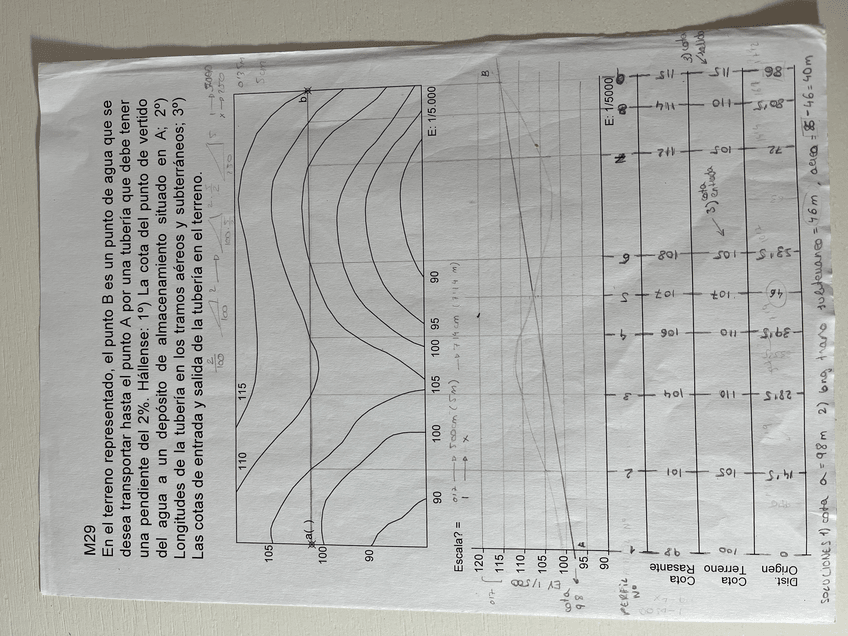 M29
En el terreno representado, el punto B es un punto de agua que se
desea transportar hasta el punto A por una tubería que debe tener
una pendiente del 2%. Hállense: 1º) La cota del punto de vertido
del agua a un depósito de almacenamiento situado en A; 2º)
Longitudes de la tubería en los tramos aéreos y subterráneos; 3º)
Las cotas de entrada y salida de la tubería en el terreno.
105
110
115
b
a( )
100
90
90
100
105
100
95
90
E: 1/5.000
Escala? =
120
115
110
105
100
95
90
B
A
cota
98
E: 1/5000
PERFIL
Nº
1 2 3 4 5 6 7 8 9
Cota
Rasante
98 101 104 106 107 108 112 114 115
Cota
Terreno
100 105 110 110 107 105 105 110 115
3) cota
entrada
3) cota
salida
Dist.
Origen
0 14'5 28'5 39'5 46 53'5 72 80'5 86
SOLUCIONES 1) cota a = 98 m 2) long. tramo subterraneo = 46 m, aereo = 86 - 46 = 40 m